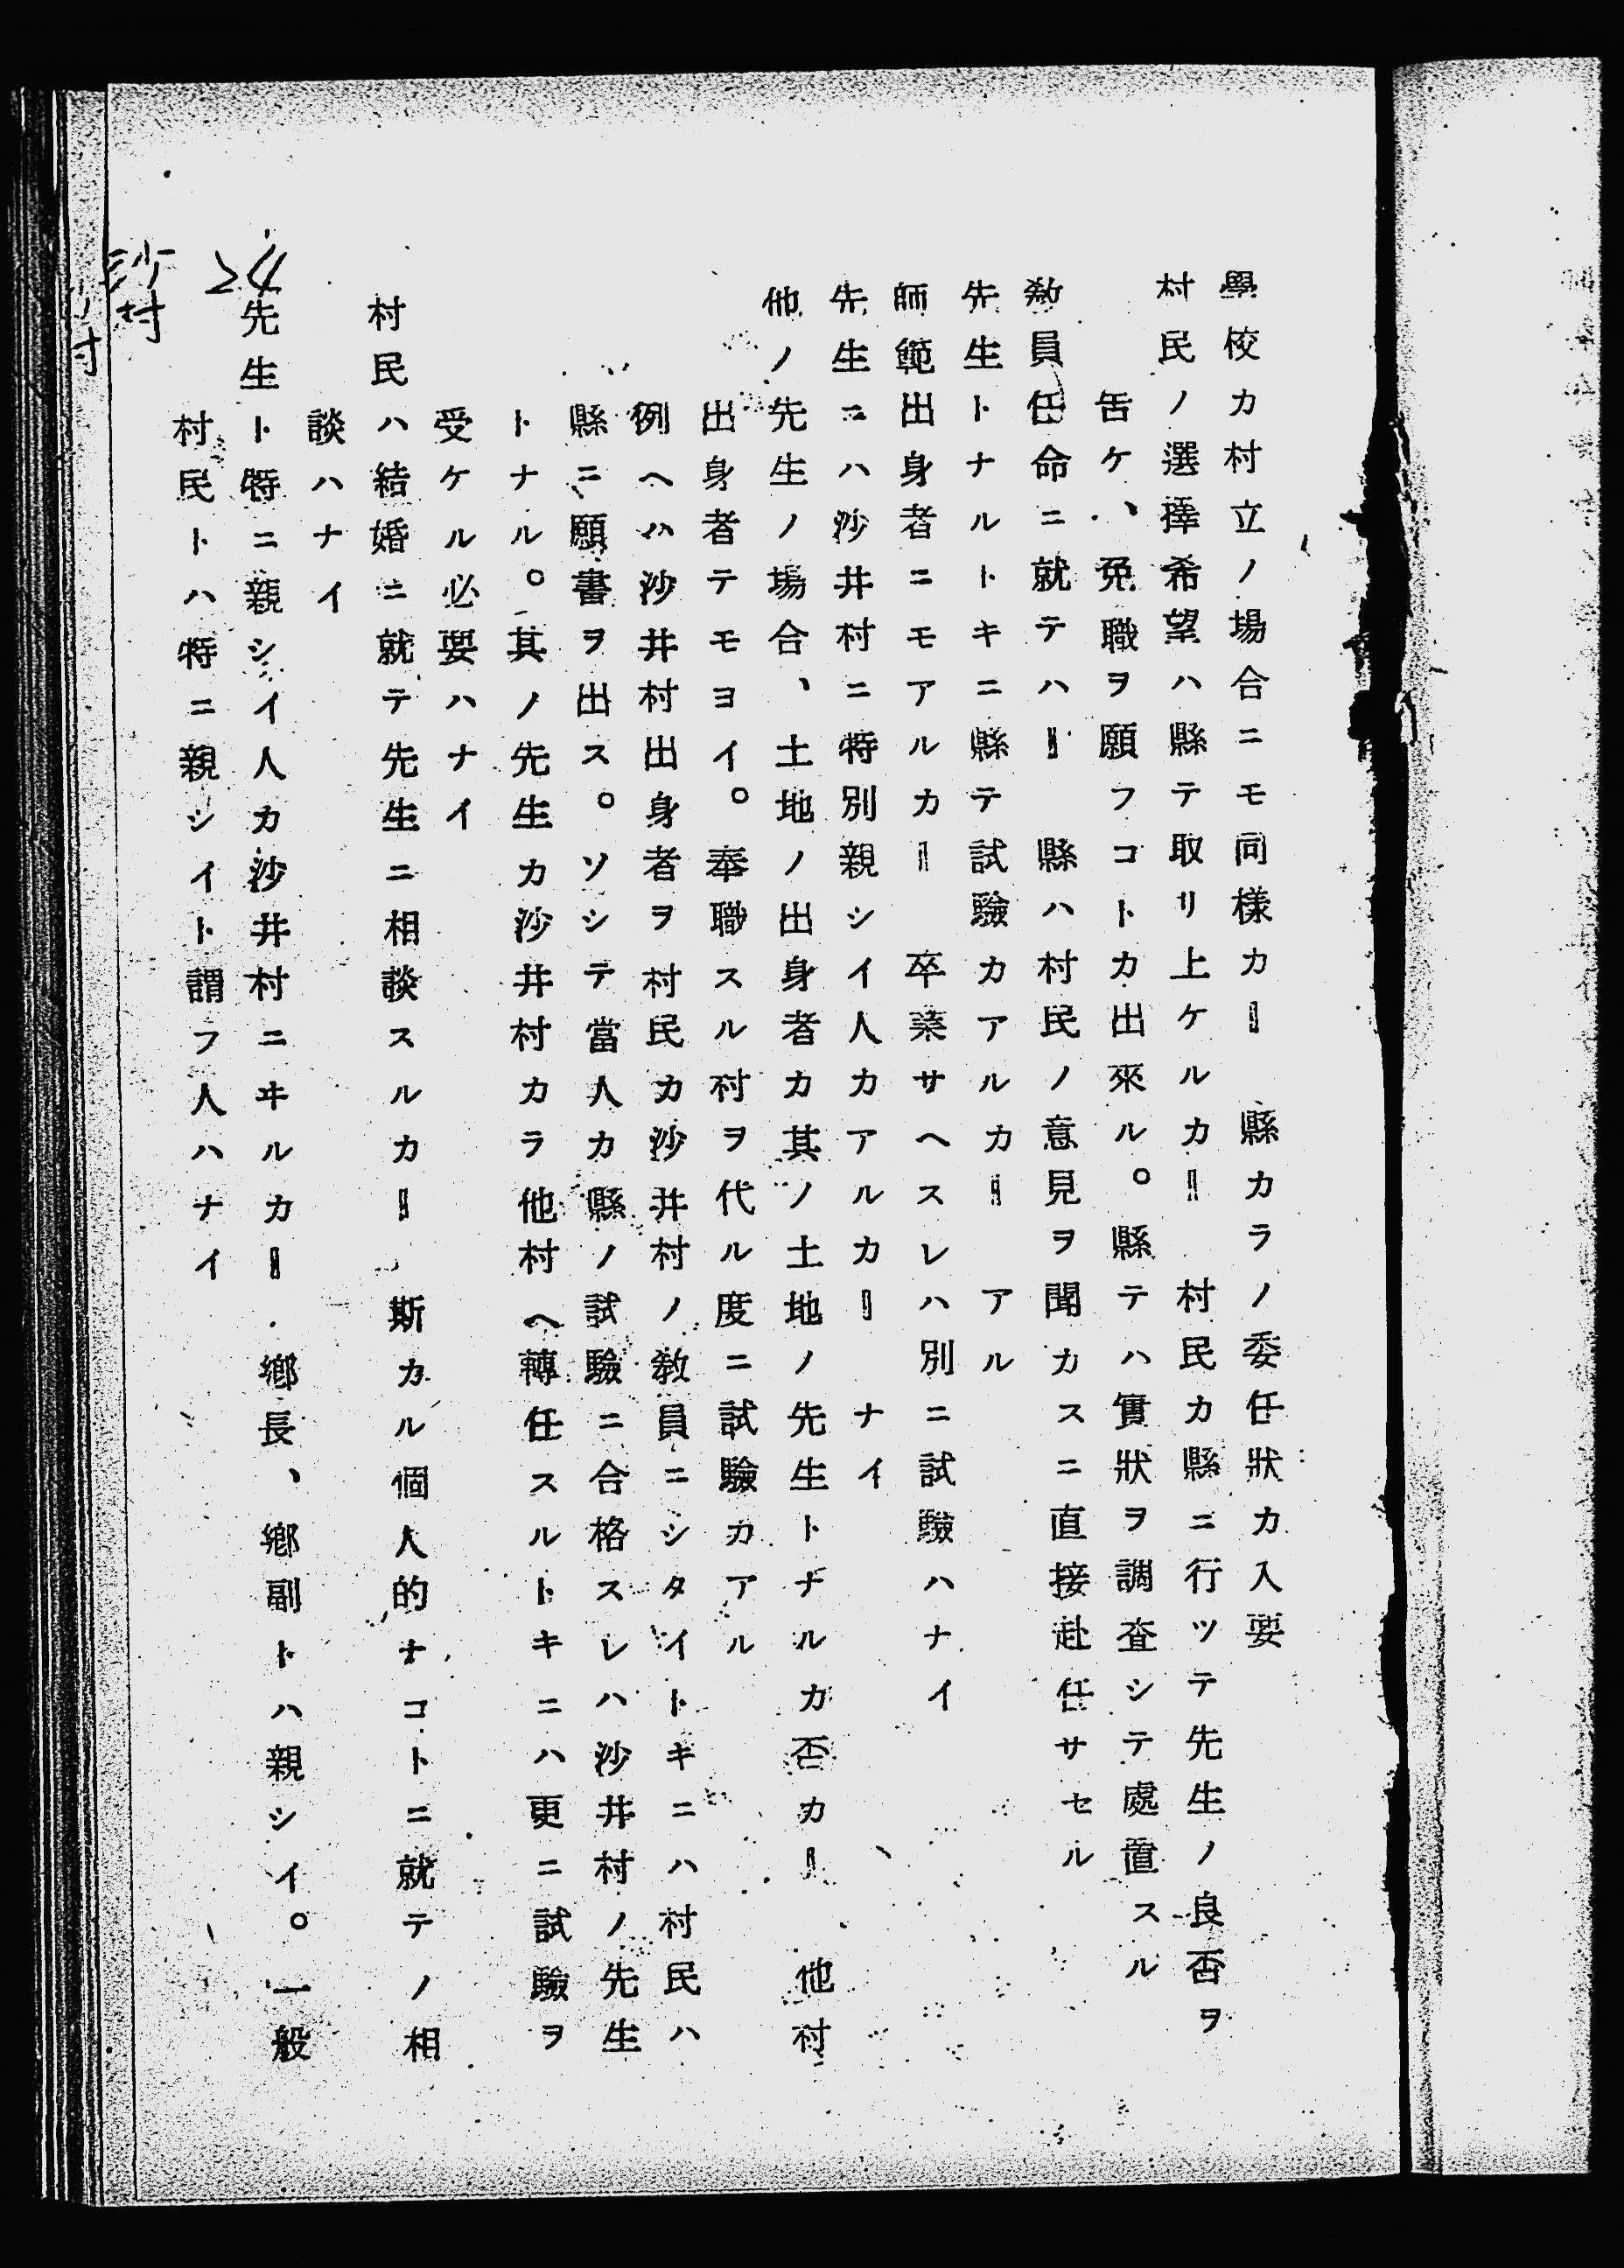 學校カ村立ノ場合ニモ同樣カ━ 縣カラノ委任狀カ入要
村民ノ選擇希望ハ縣テ取リ上ケルカ━ 村民カ縣ニ行ツテ先生ノ良否ヲ
告ケ、免職ヲ願フコトカ出來ル。縣テハ實狀ヲ調査シテ處置スル
敎員任命ニ就テハ━ 縣ハ村民ノ意見ヲ聞カスニ直接赴任サセル
先生トナルトキニ縣テ試驗カアルカ━ アル
師範出身者ニモアルカ━ 卒業サヘスレハ別ニ試驗ハナイ
先生ニハ沙井村ニ特別親シイ人カアルカ━ ナイ
他ノ先生ノ場合、土地ノ出身者カ其ノ土地ノ先生トナルカ否カ━ 他村
出身者テモヨイ。奉職スル村ヲ代ル度ニ試驗カアル
例ヘハ沙井村出身者ヲ村民カ沙井村ノ敎員ニシタイトキニハ村民ハ
縣ニ願書ヲ出ス。ソシテ當人カ縣ノ試驗ニ合格スレハ沙井村ノ先生
トナル。其ノ先生カ沙井村カラ他村ヘ轉任スルトキニハ更ニ試驗ヲ
受ケル必要ハナイ
村民ハ結婚ニ就テ先生ニ相談スルカ━ 斯カル個人的ナコトニ就テノ相
談ハナイ
先生ト特ニ親シイ人カ沙井村ニヰルカ━ 鄕長、鄕副トハ親シイ。一般
村民トハ特ニ親シイト謂フ人ハナイ
24
沙村
村